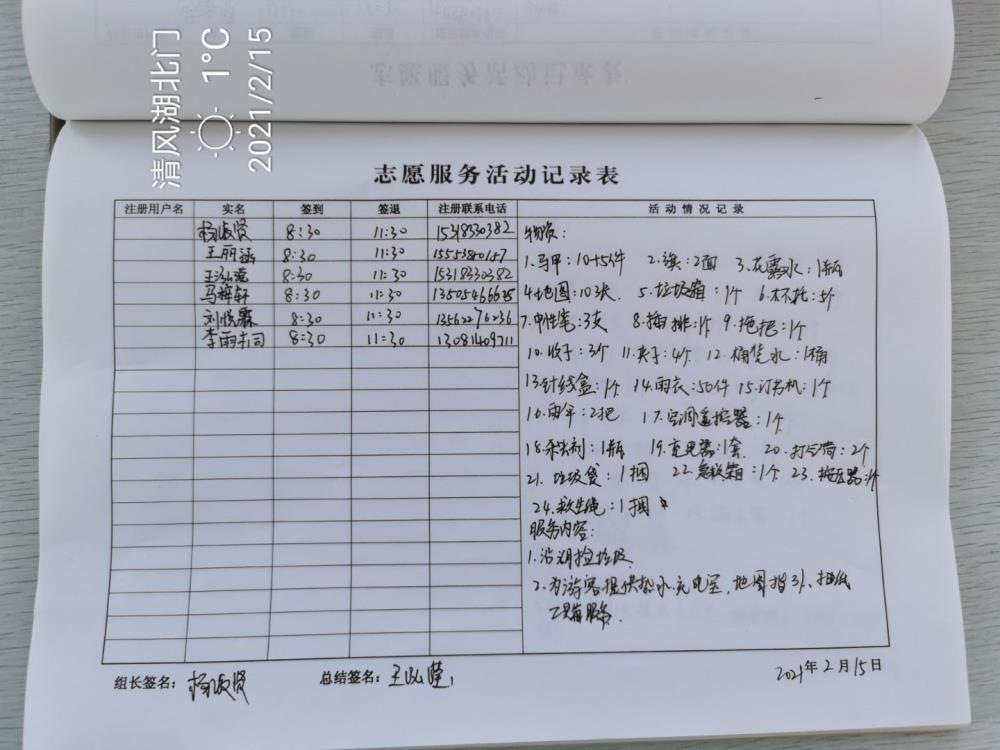 清风湖北门
1°C
2021/2/15
志愿服务活动记录表
注册用户名 实名 签到 签退 注册联系电话 活动情况记录
杨淑贤 8:30 11:30 15318330382
王丽涵 8:30 11:30
王泓莲 8:30 11:30 15318330382
马梓轩 8:30 11:30 13505466675
刘悦霖 8:30 11:30 13562276236
李雨 8:30 11:30 13081409711
物资:
1.马甲:10+5件 2.旗:2面 3.花露水:1瓶
4.地图:10块. 5.垃圾箱:1个 6.杯托:5个
7.中性笔:3支 8.插排:1个 9.拖把:1个
10.收子:3个 11.夹子:4个 12.桶装水:1桶
13.针线盒:1个 14.雨衣:50件 15.订书机:1个
16.雨伞:2把 17.空调遥控器:1个
18.杀虫剂:1瓶 19.充电器:1套 20.打气筒:2个
21.垃圾袋:1捆 22.意见箱:1个 23.
24.救生绳:1捆
服务内容:
1.沿湖捡垃圾
2.为游客提供热水.充电宝,地图指引、
工具箱服务.
组长签名: 杨淑贤 总结签名: 王泓莲
2021年2月15日